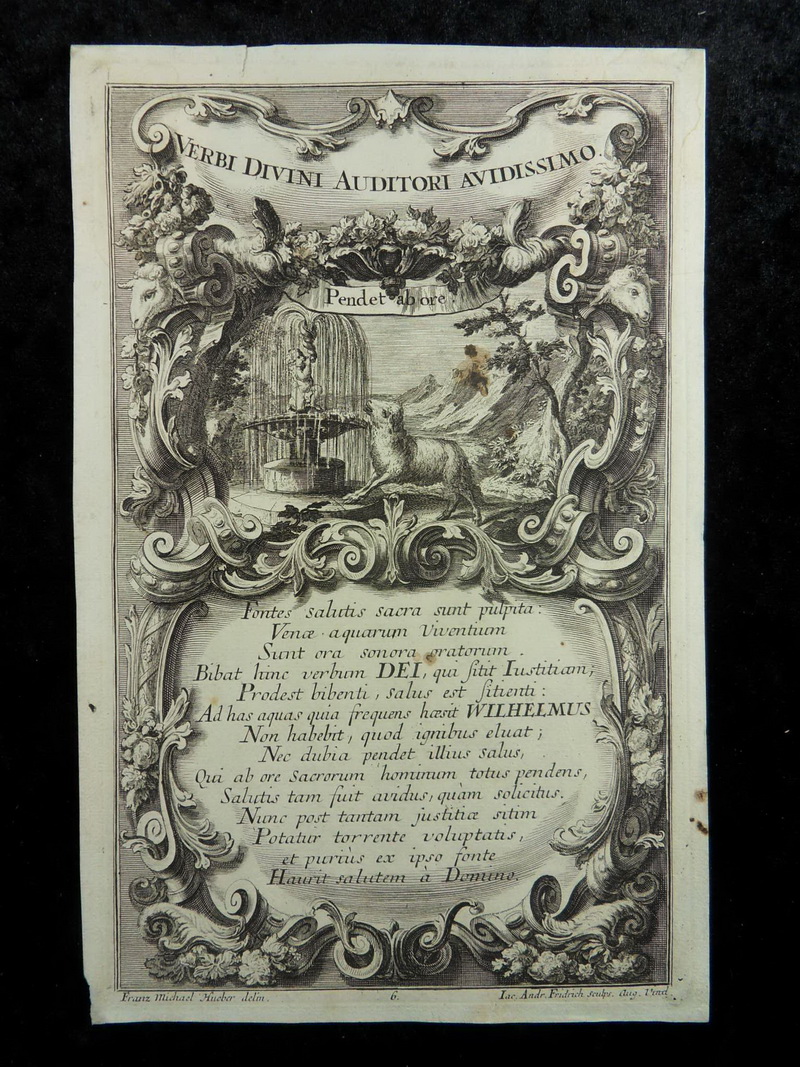 VERBI DIVINI AUDITORI AVIDISSIMO.
Pendet ab ore.
Fontes salutis sacra sunt pulpita:
Venæ aquarum Viventium
Sunt ora sonora oratorum.
Bibat hinc verbum DEI, qui sitit Iustitiam;
Prodest bibenti, salus est sitienti:
Ad has aquas quia frequens hæsit WILHELMUS
Non habebit, quod ignibus eluat;
Nec dubia pendet illius salus,
Qui ab ore Sacrorum hominum totus pendens,
Salutis tam fuit avidus, quàm solicitus.
Nunc post tantam justitiæ sitim
Potatur torrente voluptatis,
et puriùs ex ipso fonte
Haurit salutem à Domino.
Franz Michael Hueber delin. 6. Iac. Andr. Fridrich sculps. Aug. Vind.